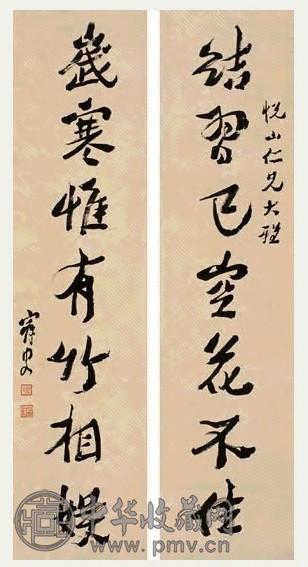 悦山仁兄大雅
结習已空花不住
歲寒惟有竹相娱
中华收藏网
www.pmv.cn